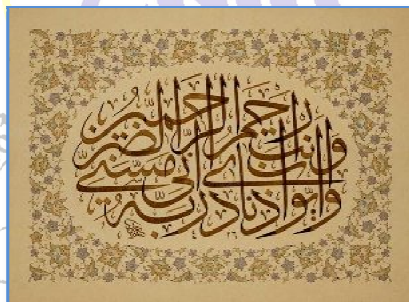 وأيوب إذ نادى ربه أني مسني الضر
وأنت أرحم الراحمين